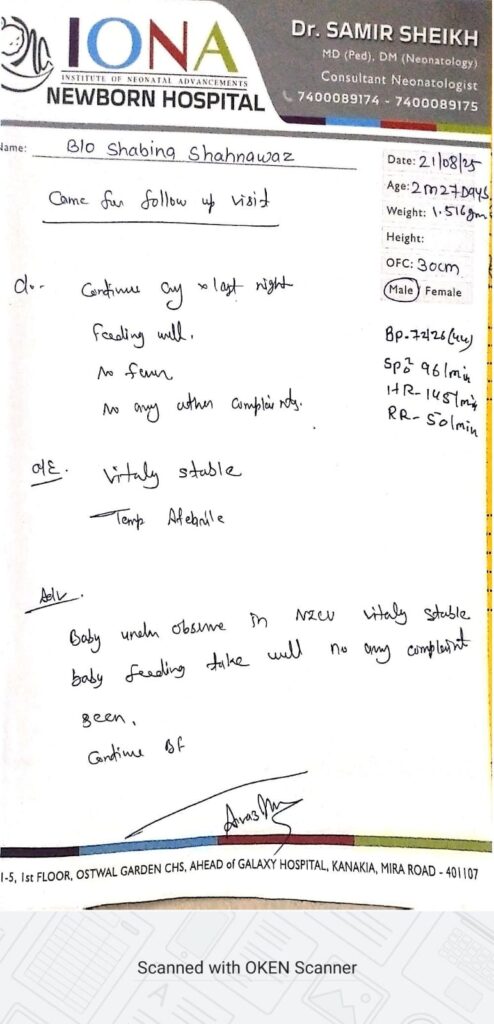 IONA
INSTITUTE OF NEONATAL ADVANCEMENTS
NEWBORN HOSPITAL
Dr. SAMIR SHEIKH
MD (Ped), DM (Neonatology)
Consultant Neonatologist
7400089174 - 7400089175
Name: B/o Shabina Shahnawaz
Date: 21/08/25
Age: 2m27Days
Weight: 1.516gm
Height:
OFC: 30cm
Male / Female
Came for follow up visit
Bp-72/26(44)
SpO2 96/min
HR-145/min
RR-50/min
c/o- Continue cry x last night
Feeding well.
No fever
No any other complaints.
o/E. Vitaly stable
Temp Afebrile
Adv.
Baby under observe in NICU vitaly stable
baby feeding take well no any complaint
seen.
Continue BF
1-5, 1st FLOOR, OSTWAL GARDEN CHS, AHEAD of GALAXY HOSPITAL, KANAKIA, MIRA ROAD - 401107
Scanned with OKEN Scanner